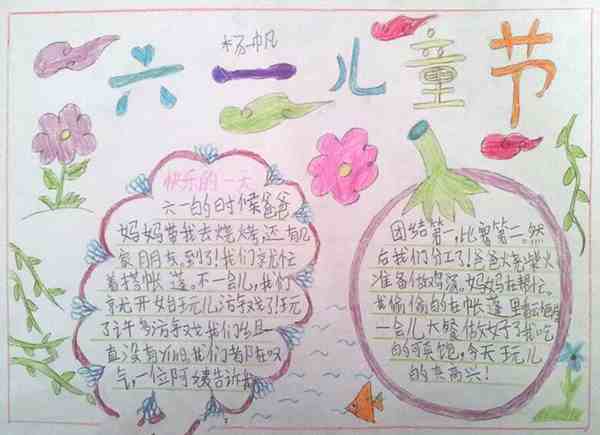 杨帆
六一儿童节
快乐的一天
六一的时候爸爸
妈妈带我去烧烤,还有几
家朋友到了!我们就忙
着搭帐蓬。不一会儿,我们
就开始玩儿游戏了!玩
了许多游戏我们
直没有 我们都在叹
气,一位阿姨告诉我
团结第一,比赛第二。然
后我们分工了!爸爸烧柴火
准备做鸡汤,妈妈在帮忙。
我偷偷的在帐蓬里
一会儿大餐做好了我吃
的可真饱,今天玩儿
的真高兴!